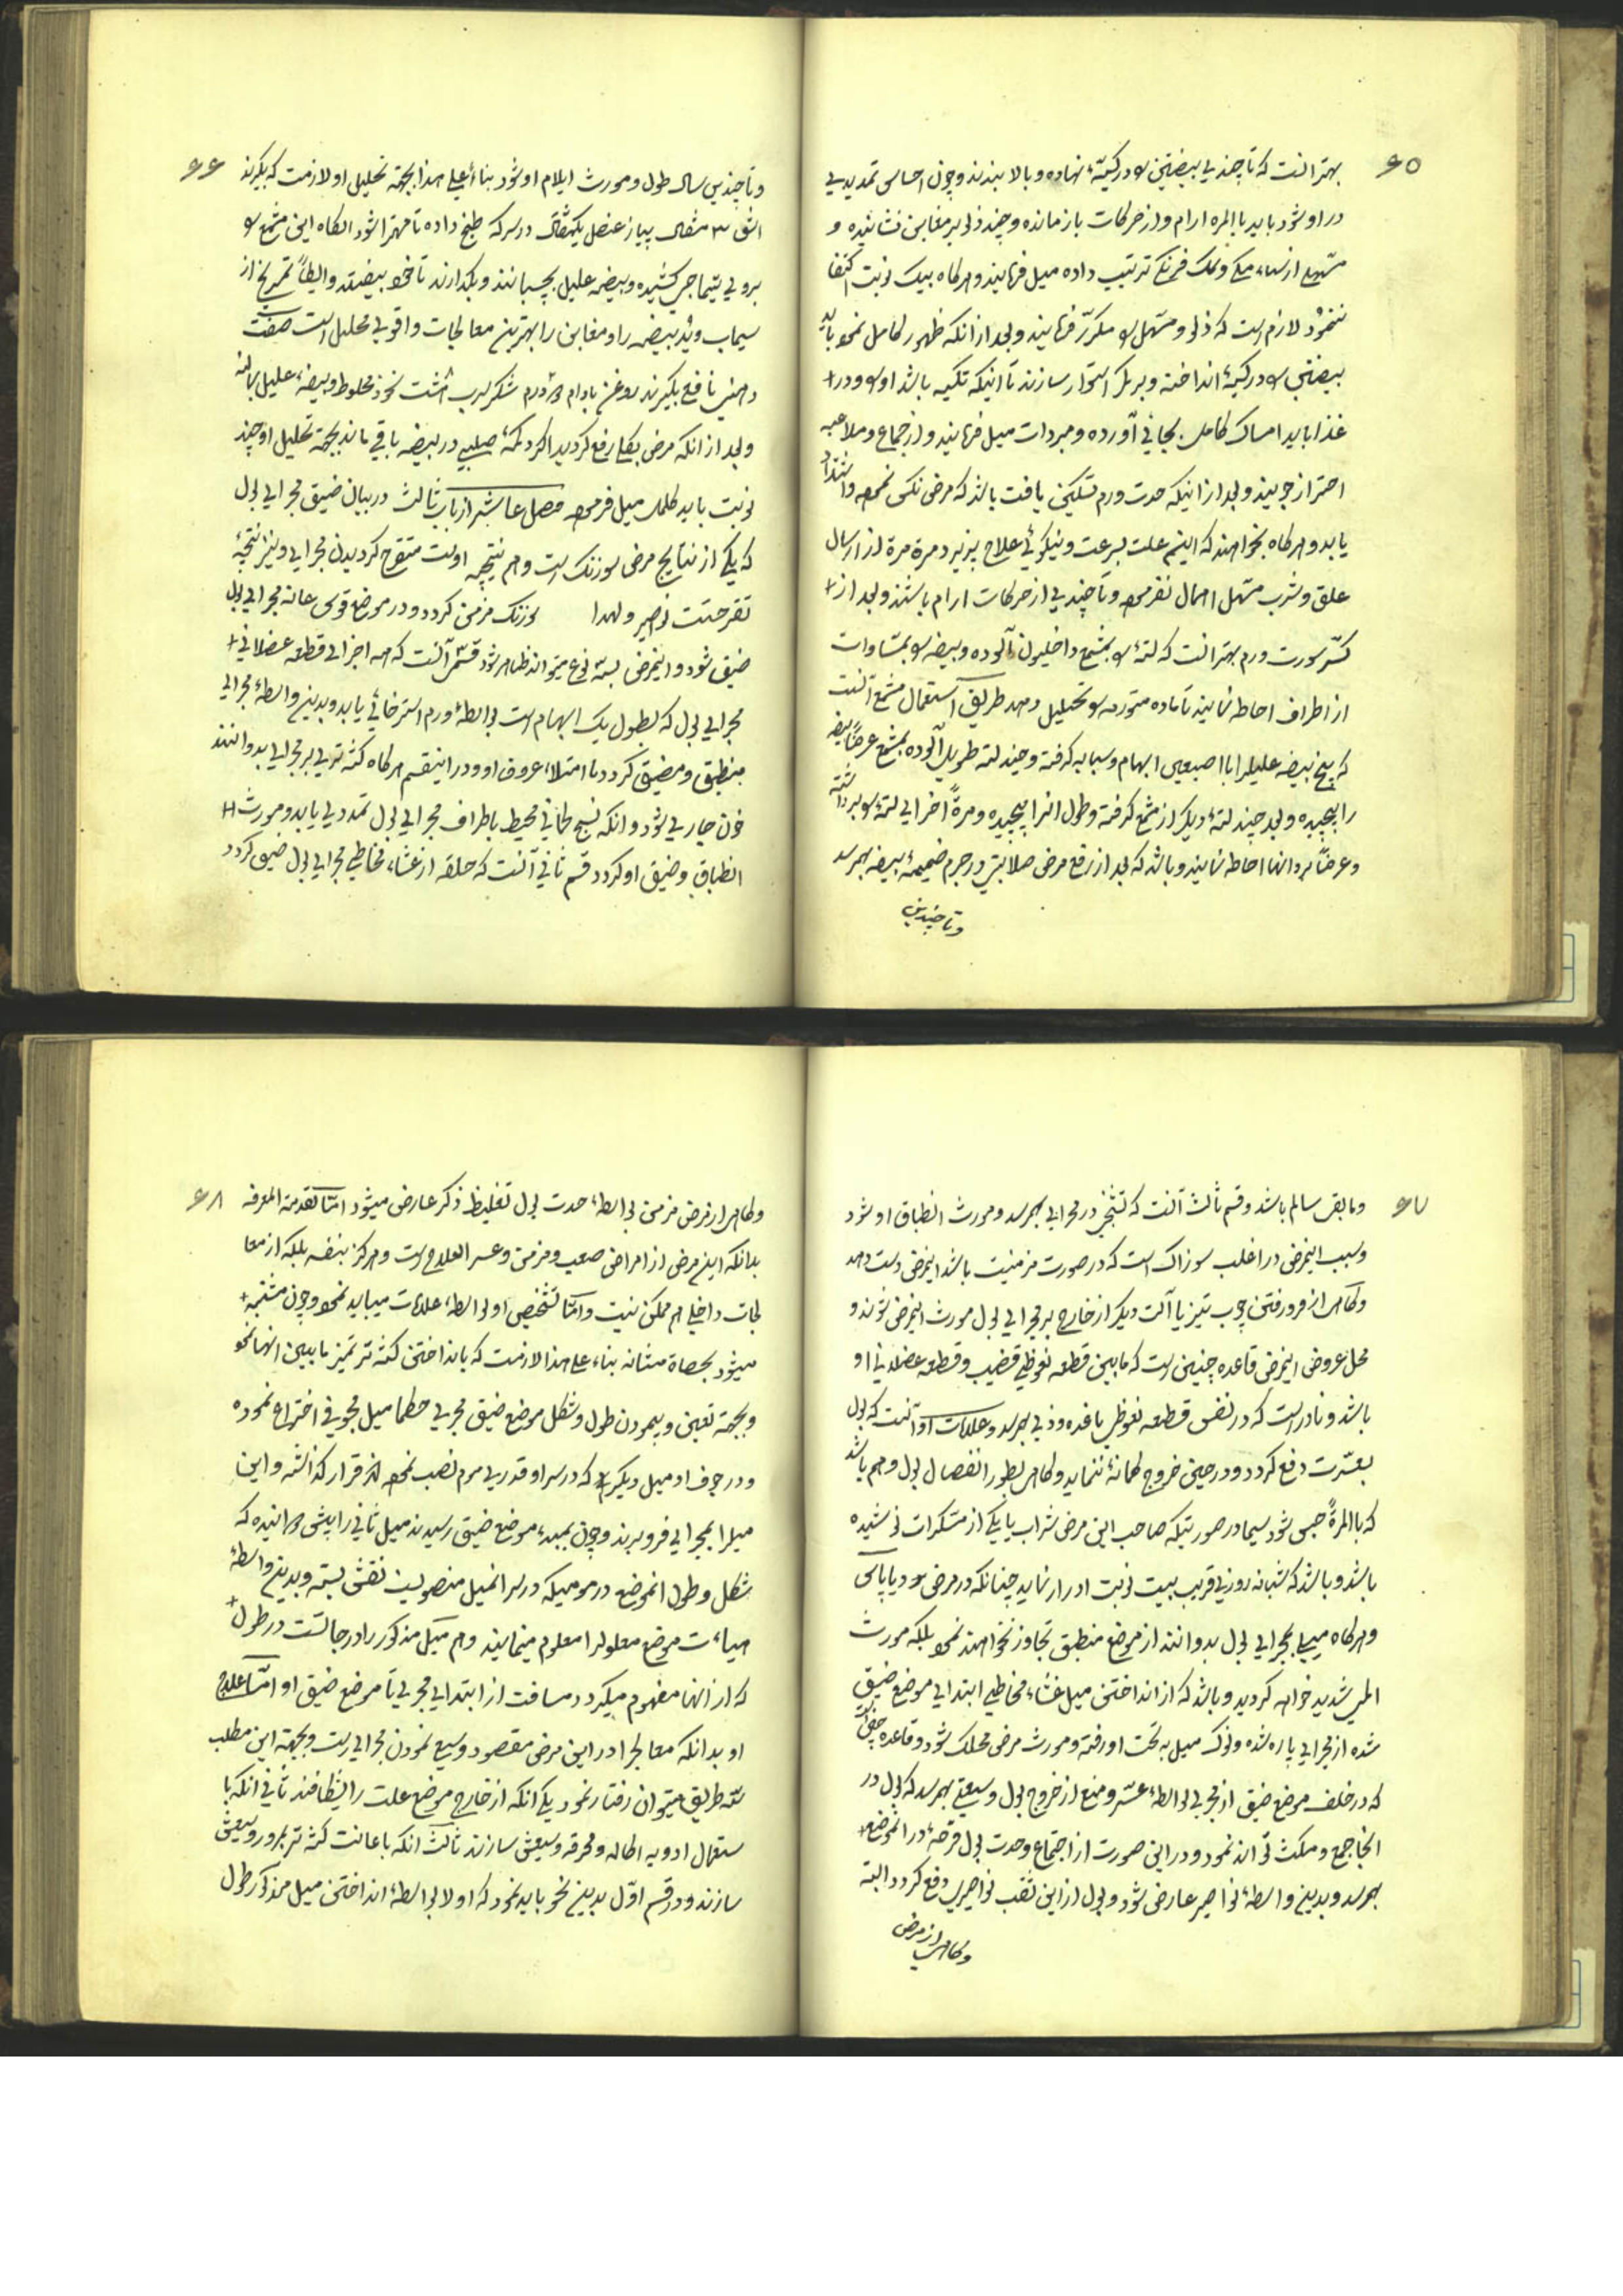 ۶۵
بهتر آنست که تا چندی بیضتین را در کیسهٔ نهاده و بالا بندند و چون احساس تمدیدی
در او شود باید بالمره آرام و از حرکات بازمانده و چند ذلو بر مغابن نشانیده و
مسهلی از سناء مکی و نمک فرنگی ترتیب داده میل فرمایند و هرگاه بیک نوبت اکتفا
ننمود لازم است که ذلو و مسهل را مکرر فرمایند و بعد از آنکه ظهور کامل نمود باید
بیضتین را در کیسهٔ انداخته و بر کمر استوار سازند تا اینکه تکیه باشد او را و در
غذا باید امساک کامل بجای آورده و مبردات میل فرمایند و از جماع و ملاعبه
احتراز جویند و بعد از اینکه حدت ورم تسکین یافت باشد که مرض نکس نموده و اشتداد
یابد و هرگاه بخواهند که این علت بسرعت و نیکوئی علاج پذیرد مرة مرة از ارسال
علق و شرب مسهل اهمال نفرموده و تا چندی از حرکات آرام باشند و بعد از
کسر سورت ورم بهتر آنست که لتهٔ را بمشمع داخلیون آلوده و بیضه را بمساوات
از اطراف احاطه نمایند تا ماده متورمه را تحلیل دهد طریق استعمال مشمع آنست
که بیخ بیضه علیل را با اصبعین ابهام و سبابه گرفته و چند لته طویل آلوده بمشمع عرضاً بیضه
را پیچیده و بعد چند لتهٔ دیگر از مشمع گرفته و طول آنرا پیچیده و مرةً اخرای لتهٔ را برداشته
و عرضاً بر آنها احاطه نمایند و باشد که بعد از رفع مرض صلابتی در جرم ضمیمهٔ بیضه بهمرسد
و تا چندین
۶۶
و تا چندین سال طول و مورث ایلام او شود بناءً علی هذا بجهة تحلیل او لازمست که بگیرند
اشق ۳ مثقال پیاز عنصل یکمثقال در سرکه طبخ داده تا مهرا شود آنگاه این مشمع را
بروی تیماجی کشیده و بیضه علیل بچسبانند و بگذارند تا خود بیفتد و ایضاً تمریخ از
سیماب و ید بیضه را و مغابن را بهترین معالجات و اقوی محلیل است صفت
دهنی نافع بگیرند روغن بادام درم شکر سرب هشت نخود مخلوط و بیضهٔ علیل بمالند
و بعد از آنکه مرض بکلی رفع گردید اگر دگمهٔ صلبی در بیضه باقی ماند بجهة تحلیل او چند
نوبت باید کلمل میل فرموده فصل عاشر از باب ثالث در بیان ضیق مجرای بول
که یکی از نتایج مرض سوزنک است و هم نتیجه اوست متقرح گردیدن مجرای و نیز نتیجهٔ
تقرحست نواصیر و لهذا سوزنک مزمن گردد و در موضع قوس عانه مجرای بول
ضیق شود و این مرض بسه نوع میتواند ظاهر شود قسم آنست که همه اجزای قطعه عضلانی
مجرای بول که بطول یک ابهام است بواسطهٔ ورم استرخائی یابد و بدین واسطهٔ مجرای
منطبق و مضیق گردد با امتلاء عروق او و در اینقسم هرگاه کثه تری بر مجرای بدوانند
خون جاری شود و آنکه نسیج لحمانی محیط باطراف مجرای بول تمددی یابد و مورث
انطباق و ضیق او گردد قسم ثانی آنست که حلقه از غشاء مخاطی مجرای بول ضیق گردد
۶۷
و مابقی سالم باشد و قسم ثالث آنست که تشنجی در مجرای بهمرسد و مورث انطباق او شود
و سبب اینمرض در اغلب سوزاک است که در صورت مزمنیت باشد اینمرض دست دهد
و گاهی از فرو رفتن چوب تیز یا آلت دیگر از خارج بر مجرای بول مورث اینمرض شوند و
محل عروض اینمرض قاعده چنین است که مابین قطعه نعوظی قضیب و قطعه عضلانی او
باشد و نادر است که در نفس قطعه نعوظی یا غده وذی بهمرسد و علامات او آنست که بول
بعسرت دفع گردد و در حین خروج کمانهٔ ننماید و گاهی بطور انفصال بول و هم باشد
که بالمرةً حبس شود سیما در صورتیکه صاحب این مرض شراب یا یکی از مسکرات نوشیده
باشد و باشد که شبانه روزی قریب بیست نوبت ادرار نماید چنانکه در مرض دیابیاس
و هرگاه میلی بمجرای بول بدوانند از موضع منطبق تجاوز نخواهند نمود بلکه مورث
المی شدید خواهد گردید و باشد که از انداختن میل غشاء مخاطی ابتدای موضع ضیق
شده از مجرای پاره شده و نوک میل به تحت او رفته و مورث مرض مهلک شود و قاعده چنین است
که در خلف موضع ضیق از مجرا بواسطهٔ عسر و منع از خروج بول وسیعتی بهمرسد که بول در
آنجا جمع و مکث تواند نمود و در این صورت از اجتماع و حدت بول قرحهٔ در آنموضع
بهمرسد و بدین واسطهٔ نواصیر عارض شود و بول از این ثقب نواصیری دفع گردد البته
و گاهی از مرض
۶۸
و گاهی از مرض مزمن بواسطهٔ حدت بول تغلیظ ذکر عارض میشود اما تقدمة المعرفه
بدانکه این مرض از امراض صعب و مزمن و عسر العلاج است و هرگز بنفسه بلکه از معا
لجات داخلی هم ممکن نیست و اما تشخیص او بواسطهٔ علامات میباید نمود و چون مشتبه
میشود بحصاة مثانه بناء علی هذا لازمست که بانداختن کثه تر تمیز مابین آنها نمود
و بجهة تعیین و پیمودن طول و شکل موضع ضیق مجری حکما میل مجوفی اختراع نموده
و در جوف او میل دیگری که در سر او قدری موم نصب نموده اند قرار گذاشته و این
میل را بمجرای فرو برند و چون بمبدء موضع ضیق رسید میل ثانی را پیش دوانیده که
شکل و طول آنموضع در مومیکه در سر آنمیل منصوبست نقش بسته و بدین واسطهٔ
هیاءت موضع معلول را معلوم مینمایند و هم میل مذکور را درجاتست در طول
که از آنها مفهوم میگردد مسافت از ابتدای مجری تا موضع ضیق او اما علاج
او بدانکه معالج را در این مرض مقصود وسیع نمودن مجرای است و بجهة این مطلب
بسه طریق میتوان رفتار نمود یکی آنکه از خارج موضع علت را بشکافند ثانی آنکه با
ستعمال ادویه اکاله و محرقه وسیعش سازند ثالث آنکه باعانت کثه تر بمرور وسیعش
سازند و در قسم اول بدین نحو باید نمود که اولا بواسطهٔ انداختن میل مذکور طول